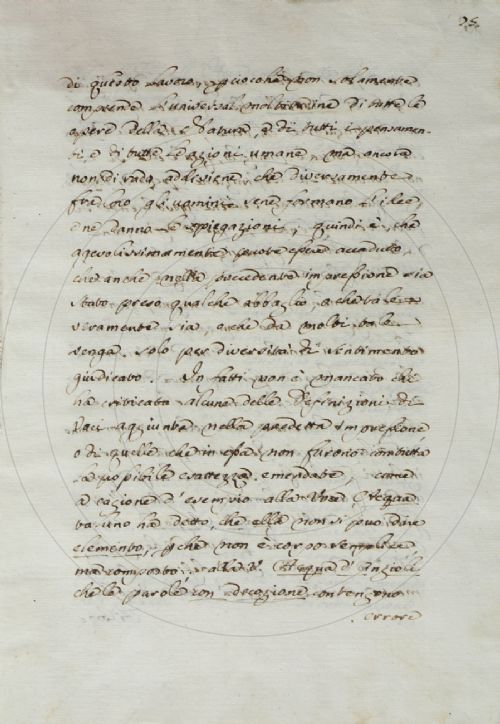 25
di questo Lavoro, pciochè non solamente
comprende l'universal moltitudine di tutte le
opere della Natura, e di tutti i pensamen-
ti, e di tutte le azioni umane, ma ancora
non di rado addiviene, che diversamente
fra loro gli uomini se ne formano l'idee,
e ne danno le spiegazioni, quindi è, che
agevolissimamente puote essere accaduto,
che anche nella precedente impressione sia
stato preso qualche abbaglio, o che tale
veramente sia, o che da molti tale
venga solo per diversità di sentimento
giudicato. In fatti non è mancato chi
ha criticato alcune delle Definizioni di
Voci aggiunte nella predetta impressione
o di quelle che in essa non furono con tutta
la possibile esattezza emendate, come
a cagione d'esempio alla Voce Acqua
ta uno ha detto, che ella non si puo dire
elemento, pchè non è corpo semplice
ma composto: alla V. Acqua d'Angioli
che le parole con decozione contengono
errore